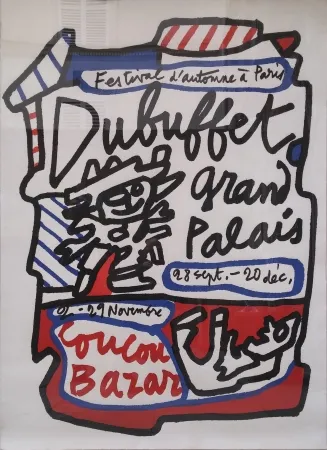 Festival d'automne à Paris
Dubuffet
grand
Palais
28 sept. - 20 déc.
- 29 Novembre
Coucou
Bazar